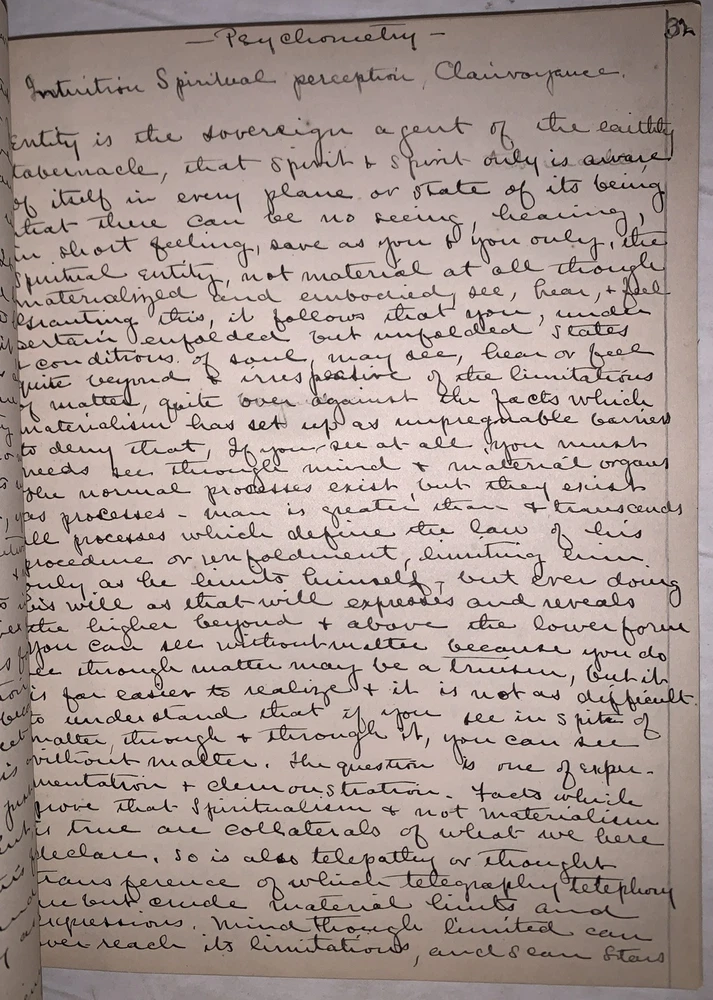 32
— Psychometry —
Intuition Spiritual perception, Clairvoyance.
Entity is the sovereign agent of the earthly
tabernacle, that Spirit & Spirit only is aware
of itself in every plane or state of its being
that there can be no seeing, hearing,
in short feeling, save as you & you only, the
Spiritual Entity, not material at all though
materialized and embodied, see, hear, & feel
Granting this, it follows that you, under
certain enfolded but unfolded States
& conditions of soul, may see, hear or feel
quite beyond & irrespective of the limitations
of matter, quite over against the facts which
materialism has set up as unpregnable barriers
to deny that, If you see at all you must
needs see through mind & material organs
The normal processes exist, but they exist
as processes - man is greater than & transcends
all processes which define the law of his
procedure or unfoldment, limiting him
only as he limits himself, but ever doing
his will as that will expresses and reveals
the higher beyond & above the lower form
You can see without matter because you do
see through matter may be a truism, but it
is far easier to realize & it is not as difficult
to understand that if you see in spite of
matter, through & through it, you can see
without matter. The question is one of expe-
mentation & demonstration. Facts which
prove that Spiritualism & not materialism
is true are collaterals of what we here
declare. So is also telepathy or thought
transference of which telegraphy telephony
are but crude material limits and
expressions. Mind though limited can
over reach its limitations, and scan stars